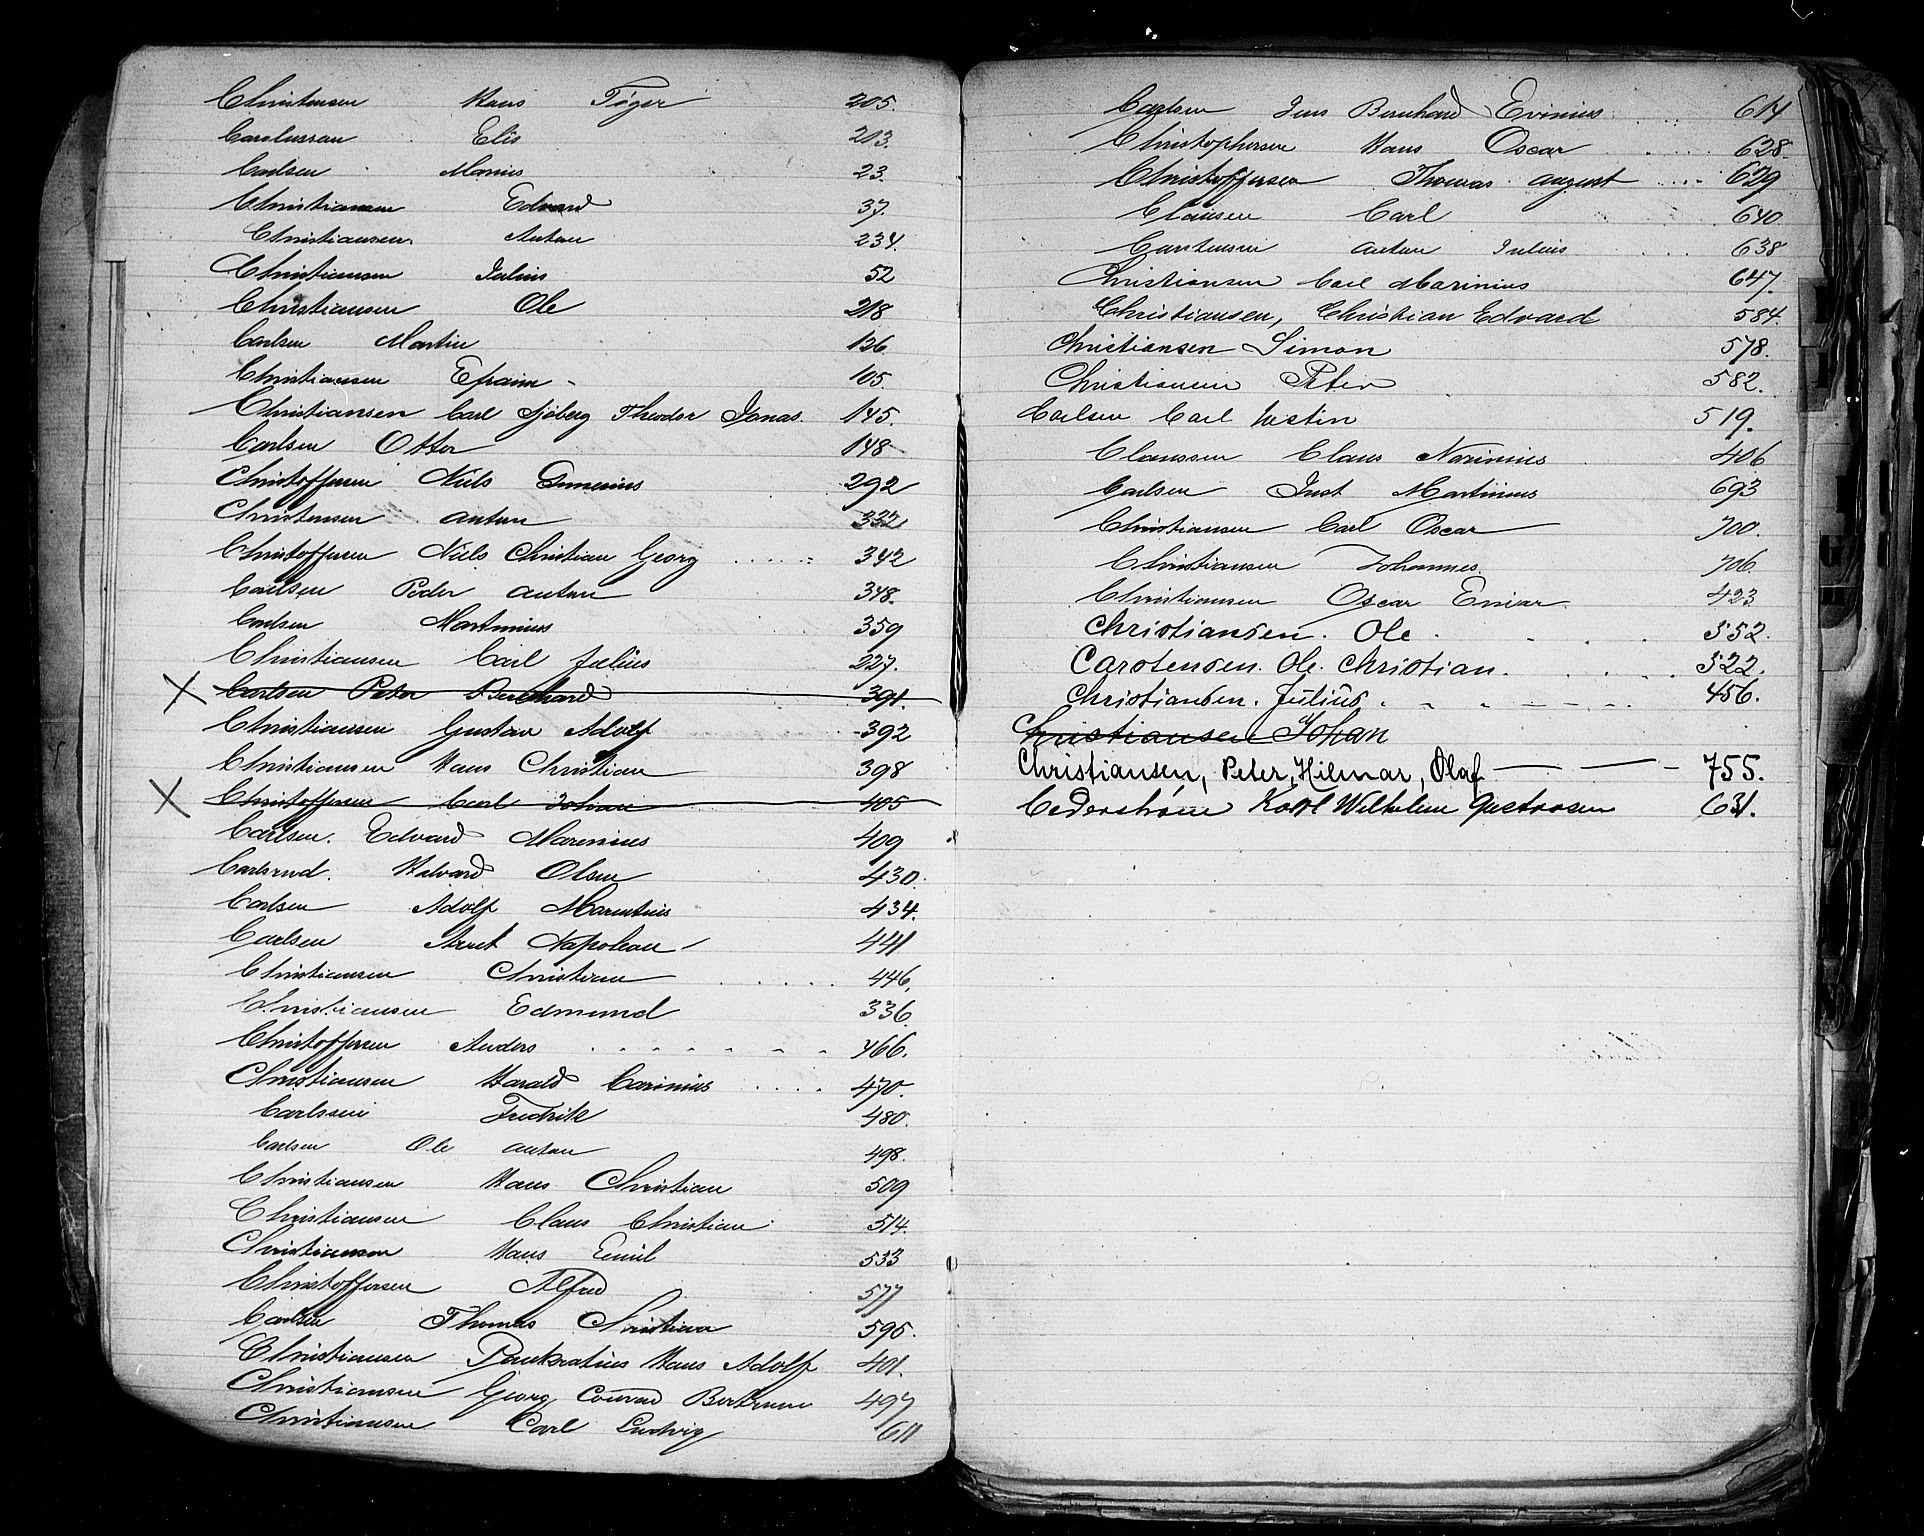 Christensen Hans Tøger 205.
Carolussen Elis 203.
Carlsen Marius 23.
Christiansen Edvard 37.
Christiansen Anton 234.
Christiansen Julius 52
Christiansen Ole 218
Carlsen Martin 126
Christiansen Efraim - 105.
Christiansen Carl Sjöberg Theodor Jonas. 145.
Carlsen Otto 148
Christoffersen Niels 292
Christensen Anton 332
Christoffersen Niels Christian Georg ...... 342
Carlsen Peder Anton 348.
Carlsen Martinius 359
Christiansen Carl Julius 227.
X Carlsen Peter Bernhard 391.
Christiansen Gustav Adolf 392
Christiansen Hans Christian 398
X Christoffersen Carl Johan 405
Carlsen. Edvard Marenius 409
Carlsrud. Halvard Olsen 430.
Carlsen Adolf Marentius 434.
Carlsen Arnt Napoleon 441
Christiansen Christian ..... 446.
Christiansen Edmund 336.
Christoffersen Anders ........ 466.
Christiansen Harald Carinius .... 470.
Carlssen Fredrik 480.
Carlsen Ole Anton 498.
Christiansen Hans Christian 509
Christiansen Claus Christian 514.
Christiansen Hans Emil 533
Christoffersen Alfred 577
Carlsen Thomas Kristian 595.
Christiansen Pankratius Hans Adolf 401.
Christiansen Georg Conrad 497
Christiansen Carl Ludvig 611
Carlsen Jens Bernhard Evinius 614
Christophersen Hans Oscar ..... 628.
Christoffersen Thomas August .... 629
Clausen Carl 640
Carstensen Anton Julius ... 638
Christiansen Carl Marinius 647.
Christiansen, Christian Edvard 584.
Christiansen Simon 578.
Christiansen Peter 582.
Carlsen Carl Justin 519.
Claussen Claus Narinius 406
Carlsen Just Martinius 693
Christiansen Carl Oscar 700.
Christiansen Johannes. 706.
Christiansen Oscar Einar. 423
Christiansen. Ole . 552.
Carstensen. Ole. Christian. ...... 522.
Christiansen. Julius. ....... 456.
Christiansen Johan
Christiansen, Peter, Hilmar, Olaf — 755.
Cederstrøm Karl Wilhelm Gustavsen 631.